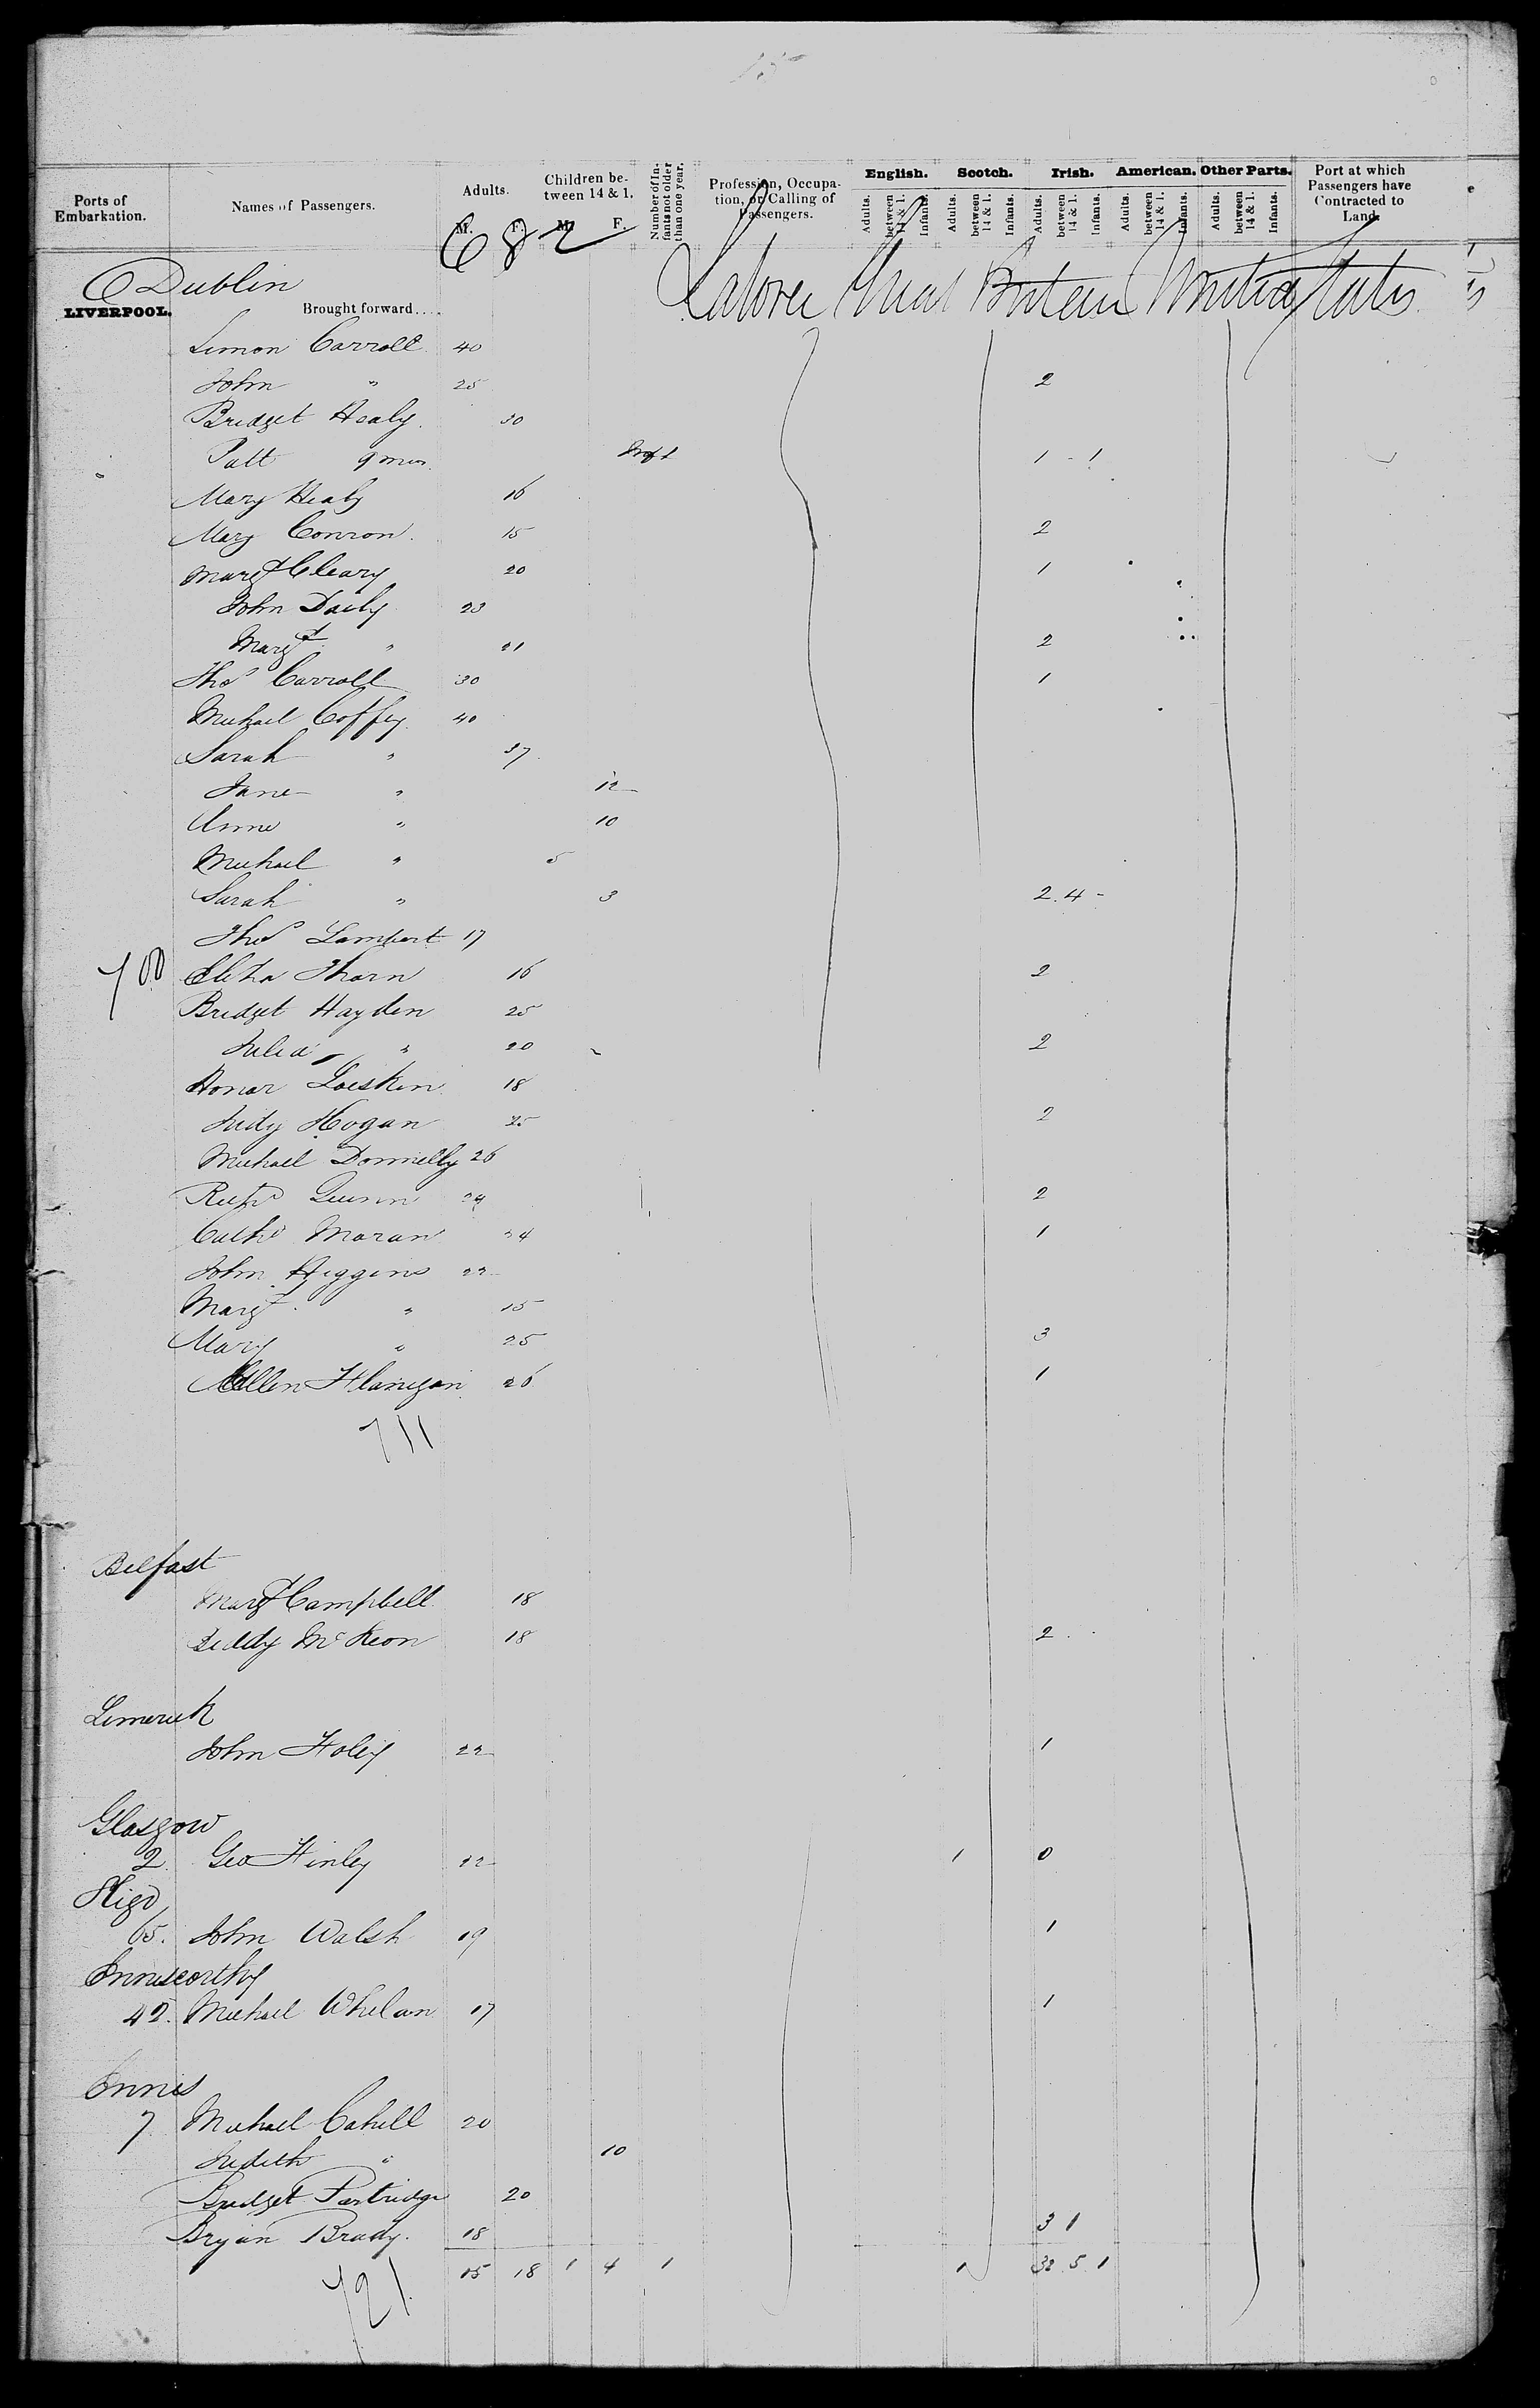 15
Ports of Embarkation. Names of Passengers. Adults. M. F. Children between 14 & 1. M. F. Number of Infants not older than one year. Profession, Occupation, or Calling of Passengers. English. Adults. between 14 & 1. Infants. Scotch. Adults. between 14 & 1. Infants. Irish. Adults. between 14 & 1. Infants. American. Adults. between 14 & 1. Infants. Other Parts. Adults. between 14 & 1. Infants. Port at which Passengers have Contracted to Land.
682
Dublin Labores Great Britain United States
LIVERPOOL. Brought forward....
Simon Carroll 40
John " 25 2
Bridget Healy 30
Patt 9 mos Inft 1 - 1
Mary Healy 16
Mary Conron 15 2
Margt Cleary 20 1
John Daily 23
Margt " 21 2
Thos Carroll 30 1
Michael Coffey 40
Sarah " 37
Jane " 12
Anne " 10
Michael " 5
Sarah " 3 2. 4 -
Thos Lambert 17
700 Eliza Thorn 16 2
Bridget Hayden 25
Julia " 20 2
Honor Loeskin 18
Judy Hogan 25 2
Michael Donnelly 26
Richd Quinn 24 2
Cathe Moran 24 1
John Higgins 22
Margt " 15
Mary " 25 3
Ellen Flanigan 26 1
711
Belfast
Margt Campbell 18
Biddy McKeon 18 2
Limerick
John Foley 22 1
Glasgow
2 Geo Finley 22 1 0
Sligo
65. John Walsh 19 1
Enniscorthy
42. Michael Whelan 17 1
Ennis
7 Michael Cahill 20
Judith " 10
Bridget Partridge 20
Bryan Brady. 18 3 1
15 18 1 4 1 1 32 5 1
721